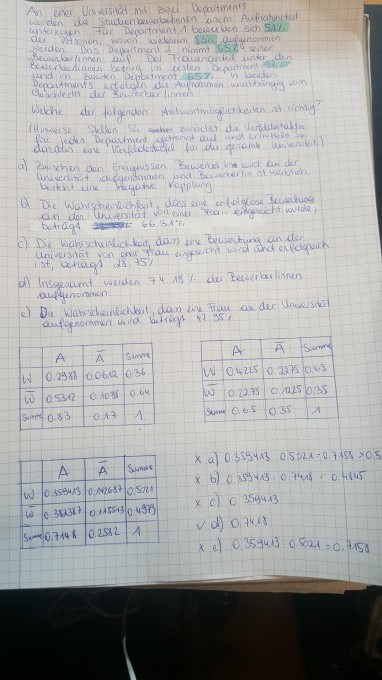 An einer Universität mit zwei Departments
werden die StudienbewerberInnen einem Aufnahmetest
unterzogen. Für Department 1 bewerben sich 51%
der Personen, wovon wiederum 83% aufgenommen
werden. Das Department 2 nimmt 65% seiner
BewerberInnen auf. Der Frauenanteil unter den
BewerberInnen beträgt im ersten Department 36%
und im zweiten Department 65%. In beiden
Departments erfolgen die Aufnahmen unabhängig vom
Geschlecht der BewerberInnen.
Welche der folgenden Antwortmöglichkeiten ist richtig?
(Hinweis: Stellen Sie zunächst die Vierfeldertafeln
für jedes Department getrennt auf und ermitteln Sie
daraus eine Vierfeldertafel für die gesamte Universität)
a) Zwischen den Ereignissen BewerberIn wird an der
Universität aufgenommen und BewerberIn ist weiblich
besteht eine negative Kopplung
b) Die Wahrscheinlichkeit, dass eine erfolglose Bewerbung
an der Universität von einer Frau eingereicht wurde,
beträgt 66.31%
c) Die Wahrscheinlichkeit, dass eine Bewerbung an der
Universität von einer Frau eingereicht wird und erfolgreich
ist, beträgt 28.75%
d) Insgesamt werden 74.18% der BewerberInnen
aufgenommen.
e) Die Wahrscheinlichkeit, dass eine Frau an der Universität
aufgenommen wird beträgt 42.35%
A Ā Summe
W 0.2988 0.0612 0.36
W̄ 0.5312 0.1088 0.64
Summe 0.83 0.17 1
A Ā Summe
W 0.4225 0.2275 0.65
W̄ 0.2275 0.1225 0.35
Summe 0.65 0.35 1
A Ā Summe
W 0.359413 0.142687 0.5021
W̄ 0.382387 0.115513 0.4979
Summe 0.7418 0.2582 1
x a) 0.359413 : 0.5021 = 0.7158 > 0.5
x b) 0.359413 : 0.7418 = 0.4845
x c) 0.359413
v d) 0.7418
x e) 0.359413 : 0.5021 = 0.7158